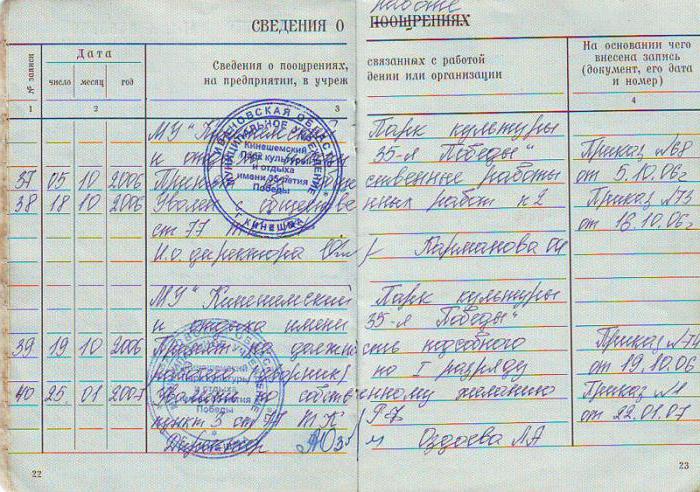 работе
СВЕДЕНИЯ О ПООЩРЕНИЯХ
№ записи
Дата
число месяц год
Сведения о поощрениях, связанных с работой
на предприятии, в учреж дении или организации
На основании чего
внесена запись
(документ, его дата
и номер)
1 2 3 4
МУ "Кинешемский Парк культуры
и отдыха 35-я Победы"
37 05 10 2006 ственные работы Приказ №68
от 5.10.06г
38 18 10 2006 Уволен с обществе нных работ п2 Приказ №73
ст 77 от 18.10.06г
И.о. директора Карманова
МУ "Кинешемский Парк культуры
и отдыха имени 35-я Победы"
39 19 10 2006 Принят на должно сть подсобного Приказ №74
по I разряду от 19.10.06
40 25 01 2007 Уволен по собств енному желанию Приказ №1
пункт 3 ст 77 ТК РФ от 22.01.07
Директор Оздоева ЛА
ИВАНОВСКАЯ ОБЛАСТЬ
МУНИЦИПАЛЬНОЕ УЧРЕЖДЕНИЕ
Кинешемский
Парк культуры
и отдыха
имени 35-летия
Победы
г. КИНЕШМА
22 23